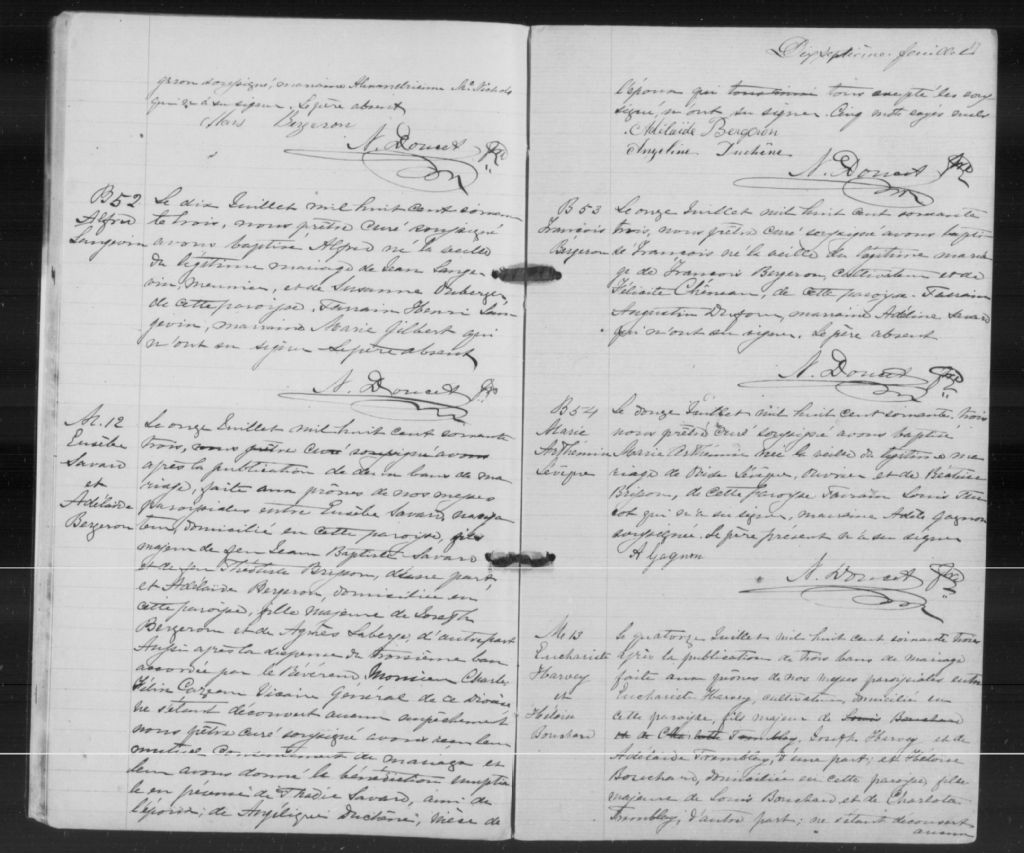 geron soussigné, marraine Alexandrienne McNichols
qui a su signer. Le père absent
Bergeron
N. Doucet Ptre
B 52
Alfred
Langevin
Le dix Juillet mil huit cent soixan
te trois, nous prêtre Curé soussigné
avons baptisé Alfred né la veille
du légitime mariage de Jean Lange
vin Meunier, et de Susanne Auberger
de cette paroisse. Parrain Henri Lan
gevin, marraine Marie Gilbert qui
n'ont su signer. Le père absent
N. Doucet Ptre
M. 12
Eusèbe
Savard
et
Adélaïde
Bergeron
Le onze Juillet mil huit cent soixante
trois, nous prêtre Curé soussigné avons
après la publication de deux bans de ma
riage, faite aux prônes de nos messes
paroissiales entre Eusèbe Savard, naviga
teur, domicilié en cette paroisse, fils
majeur de feu Jean Baptiste Savard
et de feu Théotiste Brisson, d'une part,
et Adélaïde Bergeron, domiciliée en
cette paroisse, fille majeure de Joseph
Bergeron et de Agnès Laberge, d'autre part
Aussi après la dispense du troisième ban
accordée par le Révérend Monsieur Charles
Félix Cazeau Vicaire Général de ce Diocèse
ne s'étant découvert aucun empêchement
nous prêtre curé soussigné avons reçu leur
mutuel consentement de mariage et
leur avons donné la bénédiction nuptia
le en présence de Thadée Savard, ami de
l'époux; de Angélique Duchêne, nièce de
Dix septième feuillet
l'épouse qui tous excepté les sous
signés, n'ont su signer. Cinq mots rayés nuls
Adélaïde Bergeron
Angeline Duchêne
N. Doucet Ptre
B 53
François
Bergeron
Le onze Juillet mil huit cent soixante
trois, nous prêtre curé soussigné avons bapti
sé François né la veille du légitime maria
ge de François Bergeron, cultivateur et de
Félicité Chêneau, de cette paroisse. Parrain
Augustin Dufour, marraine Adeline Savard
qui n'ont su signer. Le père absent
N. Doucet Ptre
B 54
Marie
Arthemise
Lévêque
Le douze Juillet mil huit cent soixante trois
nous prêtre curé soussigné avons baptisé
Marie Arthemise née la veille du légitime ma
riage de Lévêque, ouvrier et de Béatrice
Brisson, de cette paroisse Parrain Louis
qui n'a su signer, marraine Adèle Gagnon
soussignée. Le père présent n'a su signer
A Gagnon
N. Doucet Ptre
M 13
Euchariste
Harvey
et
Héloïse
Bouchard
Le quatorze Juillet mil huit cent soixante trois
après la publication de trois bans de mariage
faite aux prônes de nos messes paroissiales entre
Euchariste Harvey, cultivateur, domicilié en
cette paroisse, fils majeur de Louis Bouchard
et de Charlotte Tremblay, Joseph Harvey et de
Adélaïde Tremblay, d'une part; et Héloïse
Bouchard, domiciliée en cette paroisse, fille
majeure de Louis Bouchard et de Charlotte
Tremblay, d'autre part; ne s'étant découvert
aucun